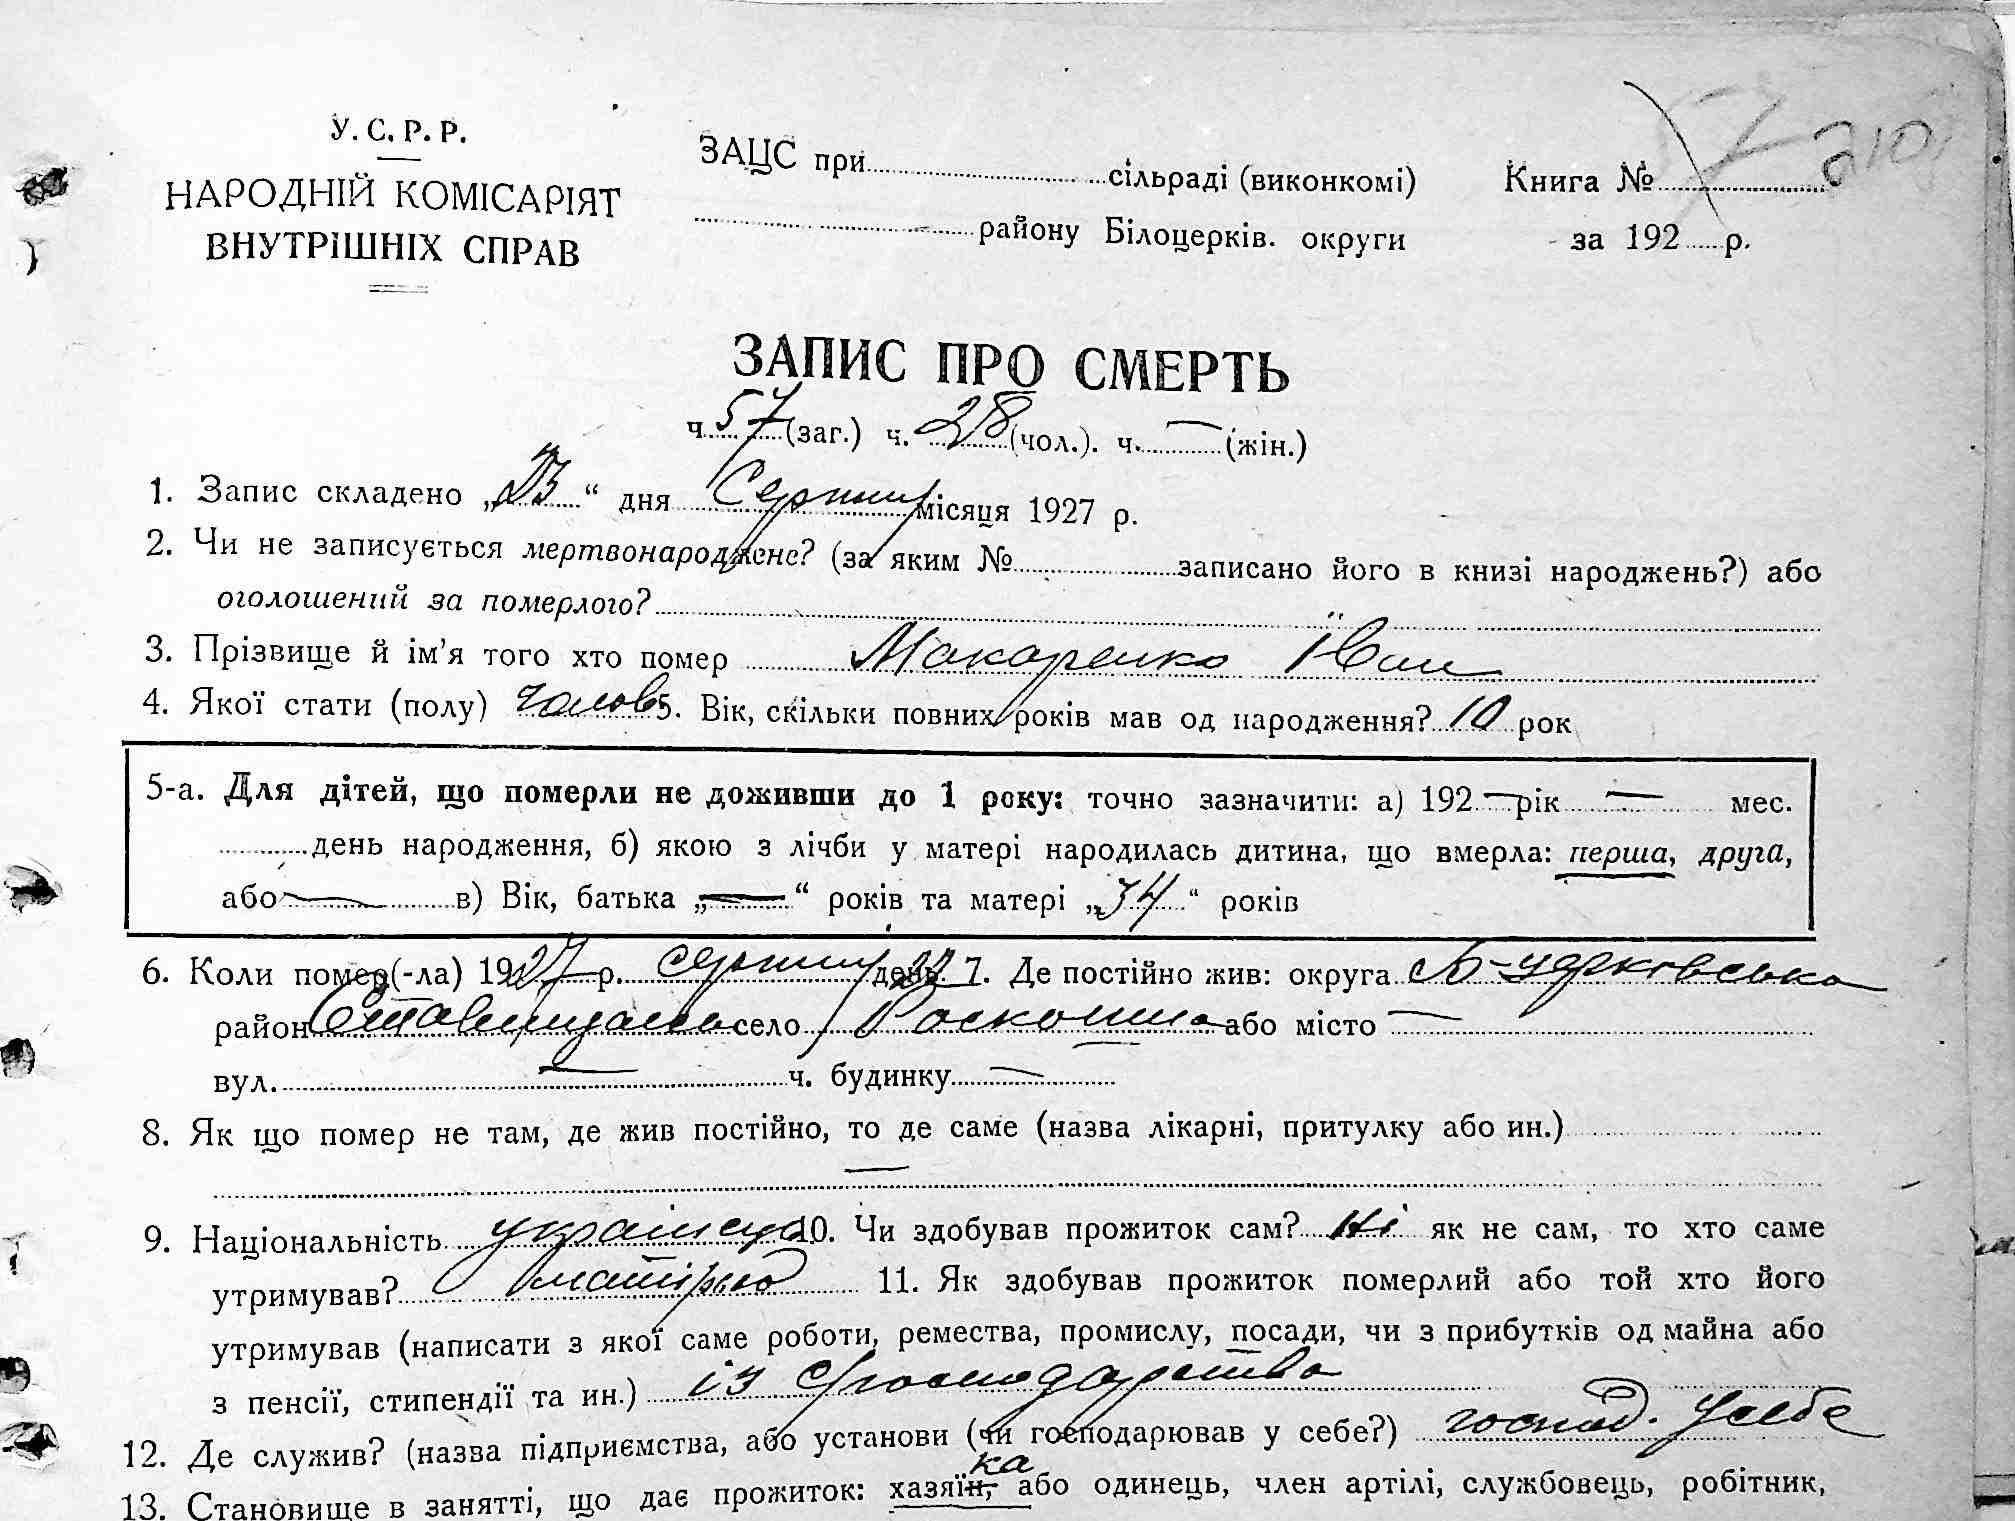 57 210
У. С. Р. Р.
НАРОДНІЙ КОМІСАРІЯТ
ВНУТРІШНІХ СПРАВ
ЗАЦС при сільраді (виконкомі) Книга №
району Білоцерків. округи за 192 р.
ЗАПИС ПРО СМЕРТЬ
ч. 57 (заг.) ч. 28 (чол.). ч. — (жін.)
1. Запис складено „23“ дня Серпня місяця 1927 р.
2. Чи не записується мертвонароджене? (за яким № записано його в книзі народжень?) або
оголошений за померлого?
3. Прізвище й ім’я того хто помер Макаренко Іван
4. Якої стати (полу) чолов 5. Вік, скільки повних років мав од народження? 10 рок
5-а. Для дітей, що померли не доживши до 1 року: точно зазначити: а) 192 — рік — мес.
день народження, б) якою з лічби у матері народилась дитина, що вмерла: перша, друга,
або — в) Вік, батька „—“ років та матері „34“ років
6. Коли помер(-ла) 1927 р. серпня день 7. Де постійно жив: округа Б-Церковська
район село Роскошна або місто —
вул. — ч. будинку —
8. Як що помер не там, де жив постійно, то де саме (назва лікарні, притулку або ин.)
—
9. Національність 10. Чи здобував прожиток сам? ні як не сам, то хто саме
утримував? матірью 11. Як здобував прожиток померлий або той хто його
утримував (написати з якої саме роботи, ремества, промислу, посади, чи з прибутків од майна або
з пенсії, стипендії та ин.) із господарства
12. Де служив? (назва підприємства, або установи (чи господарював у себе?) господ. у себе
13. Становище в занятті, що дає прожиток: хазяїн, ка або одинець, член артілі, службовець, робітник,